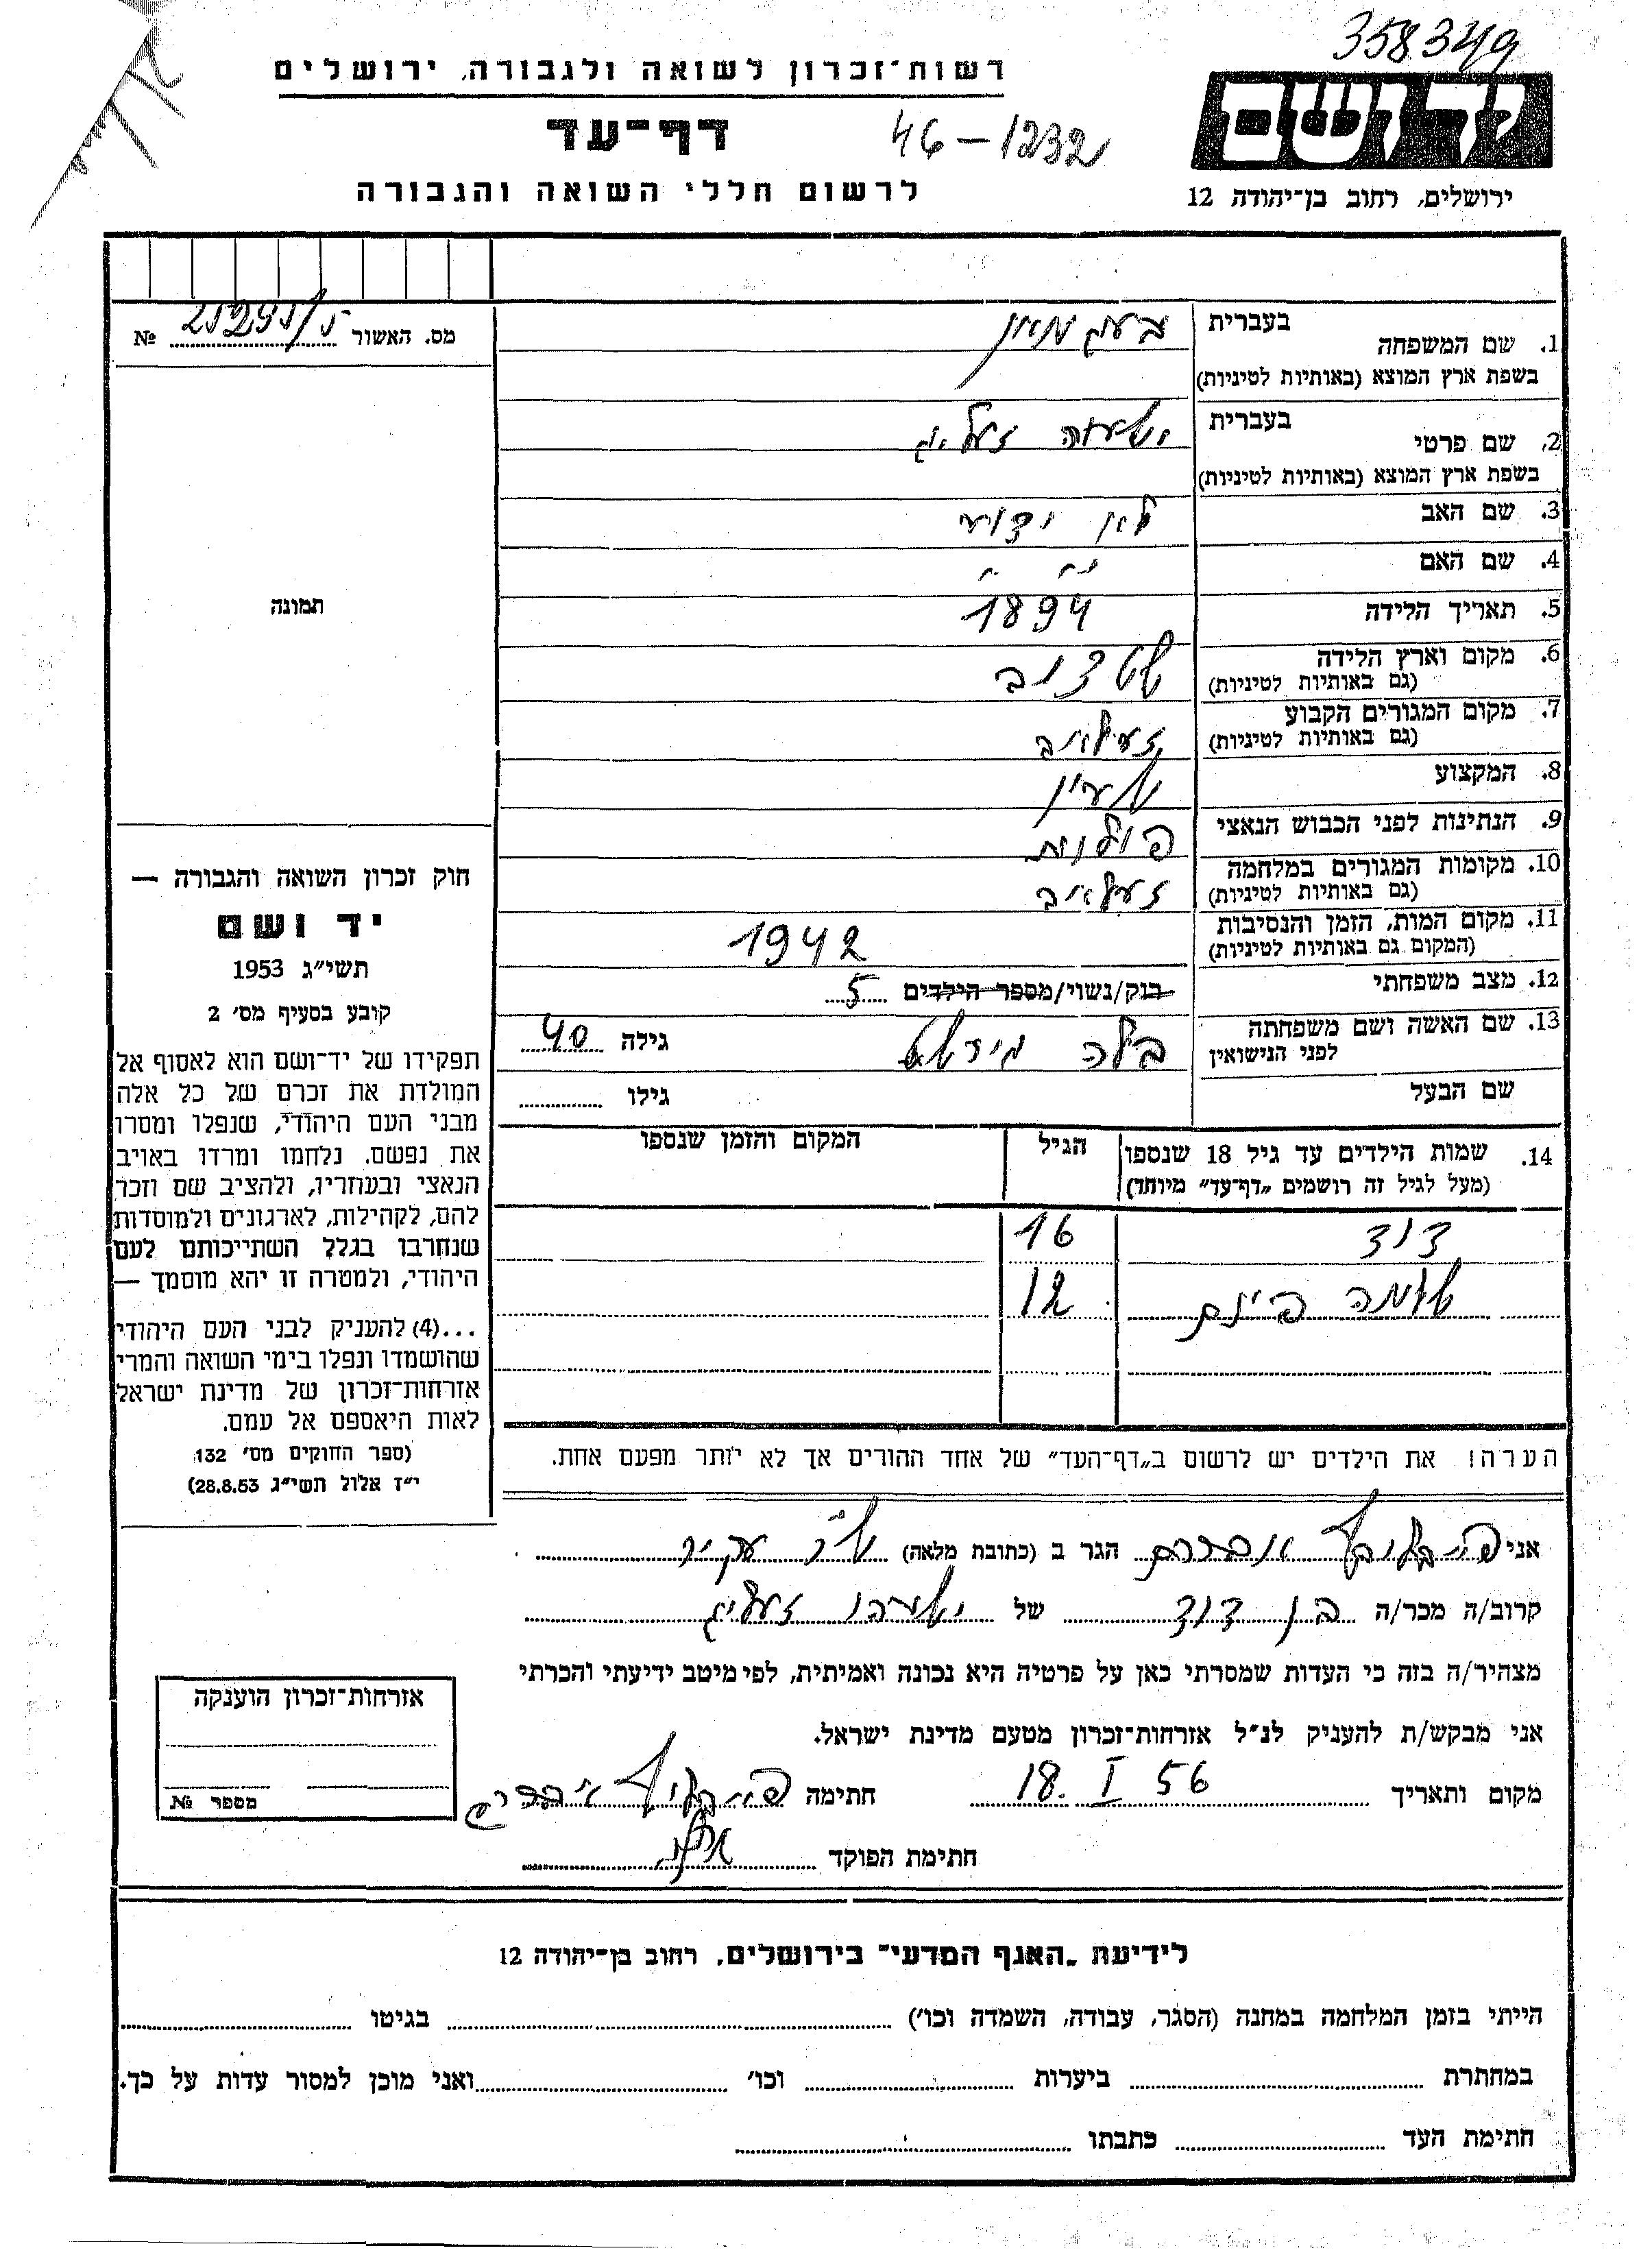 358349
רשות־זכרון לשואה ולגבורה, ירושלים
דף־עד
46-1232
לרשום חללי השואה והגבורה
יד ושם
ירושלים, רחוב בן־יהודה 12
מס. האשור № 
1. שם המשפחה
בעברית
בשפת ארץ המוצא (באותיות לטיניות)
2. שם פרטי
בעברית
ישעיה זעליג
בשפת ארץ המוצא (באותיות לטיניות)
3. שם האב לא ידוע
4. שם האם " "
5. תאריך הלידה 1894
6. מקום וארץ הלידה
(גם באותיות לטיניות)
7. מקום המגורים הקבוע
(גם באותיות לטיניות)
8. המקצוע
9. הנתינות לפני הכבוש הנאצי פולנית
10. מקומות המגורים במלחמה
(גם באותיות לטיניות)
11. מקום המות, הזמן והנסיבות 1942
(המקום גם באותיות לטיניות)
12. מצב משפחתי רוק/נשוי/מספר הילדים 5
13. שם האשה ושם משפחתה בילה גילה 40
לפני הנישואין
שם הבעל גילו
14. שמות הילדים עד גיל 18 שנספו הגיל המקום והזמן שנספו
(מעל לגיל זה רושמים „דף־עד” מיוחד)
דוד 16
12
הערה! את הילדים יש לרשום ב„דף־העד” של אחד ההורים אך לא יותר מפעם אחת.
תמונה
חוק זכרון השואה והגבורה —
יד ושם
תשי״ג 1953
קובע בסעיף מס׳ 2
תפקידו של יד־ושם הוא לאסוף אל
המולדת את זכרם של כל אלה
מבני העם היהודי, שנפלו ומסרו
את נפשם, נלחמו ומרדו באויב
הנאצי ובעוזריו, ולהציב שם וזכר
להם, לקהילות, לארגונים ולמוסדות
שנחרבו בגלל השתייכותם לעם
היהודי, ולמטרה זו יהא מוסמך —
...(4) להעניק לבני העם היהודי
שהושמדו ונפלו בימי השואה והמרי
אזרחות־זכרון של מדינת ישראל
לאות היאספם אל עמם.
(ספר החוקים מס׳ 132,
י״ז אלול תשי״ג 28.8.53)
אני אברהם הגר ב (כתובת מלאה)
קרוב/ה מכר/ה בן דוד של ישעיהו זעליג
מצהיר/ה בזה כי העדות שמסרתי כאן על פרטיה היא נכונה ואמיתית, לפי מיטב ידיעתי והכרתי
אני מבקש/ת להעניק לנ״ל אזרחות־זכרון מטעם מדינת ישראל.
מקום ותאריך 18. I 56 חתימה
חתימת הפוקד
אזרחות־זכרון הוענקה
מספר №
לידיעת „האגף המדעי” בירושלים, רחוב בן־יהודה 12
הייתי בזמן המלחמה במחנה (הסגר, עבודה, השמדה וכו׳) בגיטו
במחתרת ביערות וכו׳ ואני מוכן למסור עדות על כך.
חתימת העד כתבתו